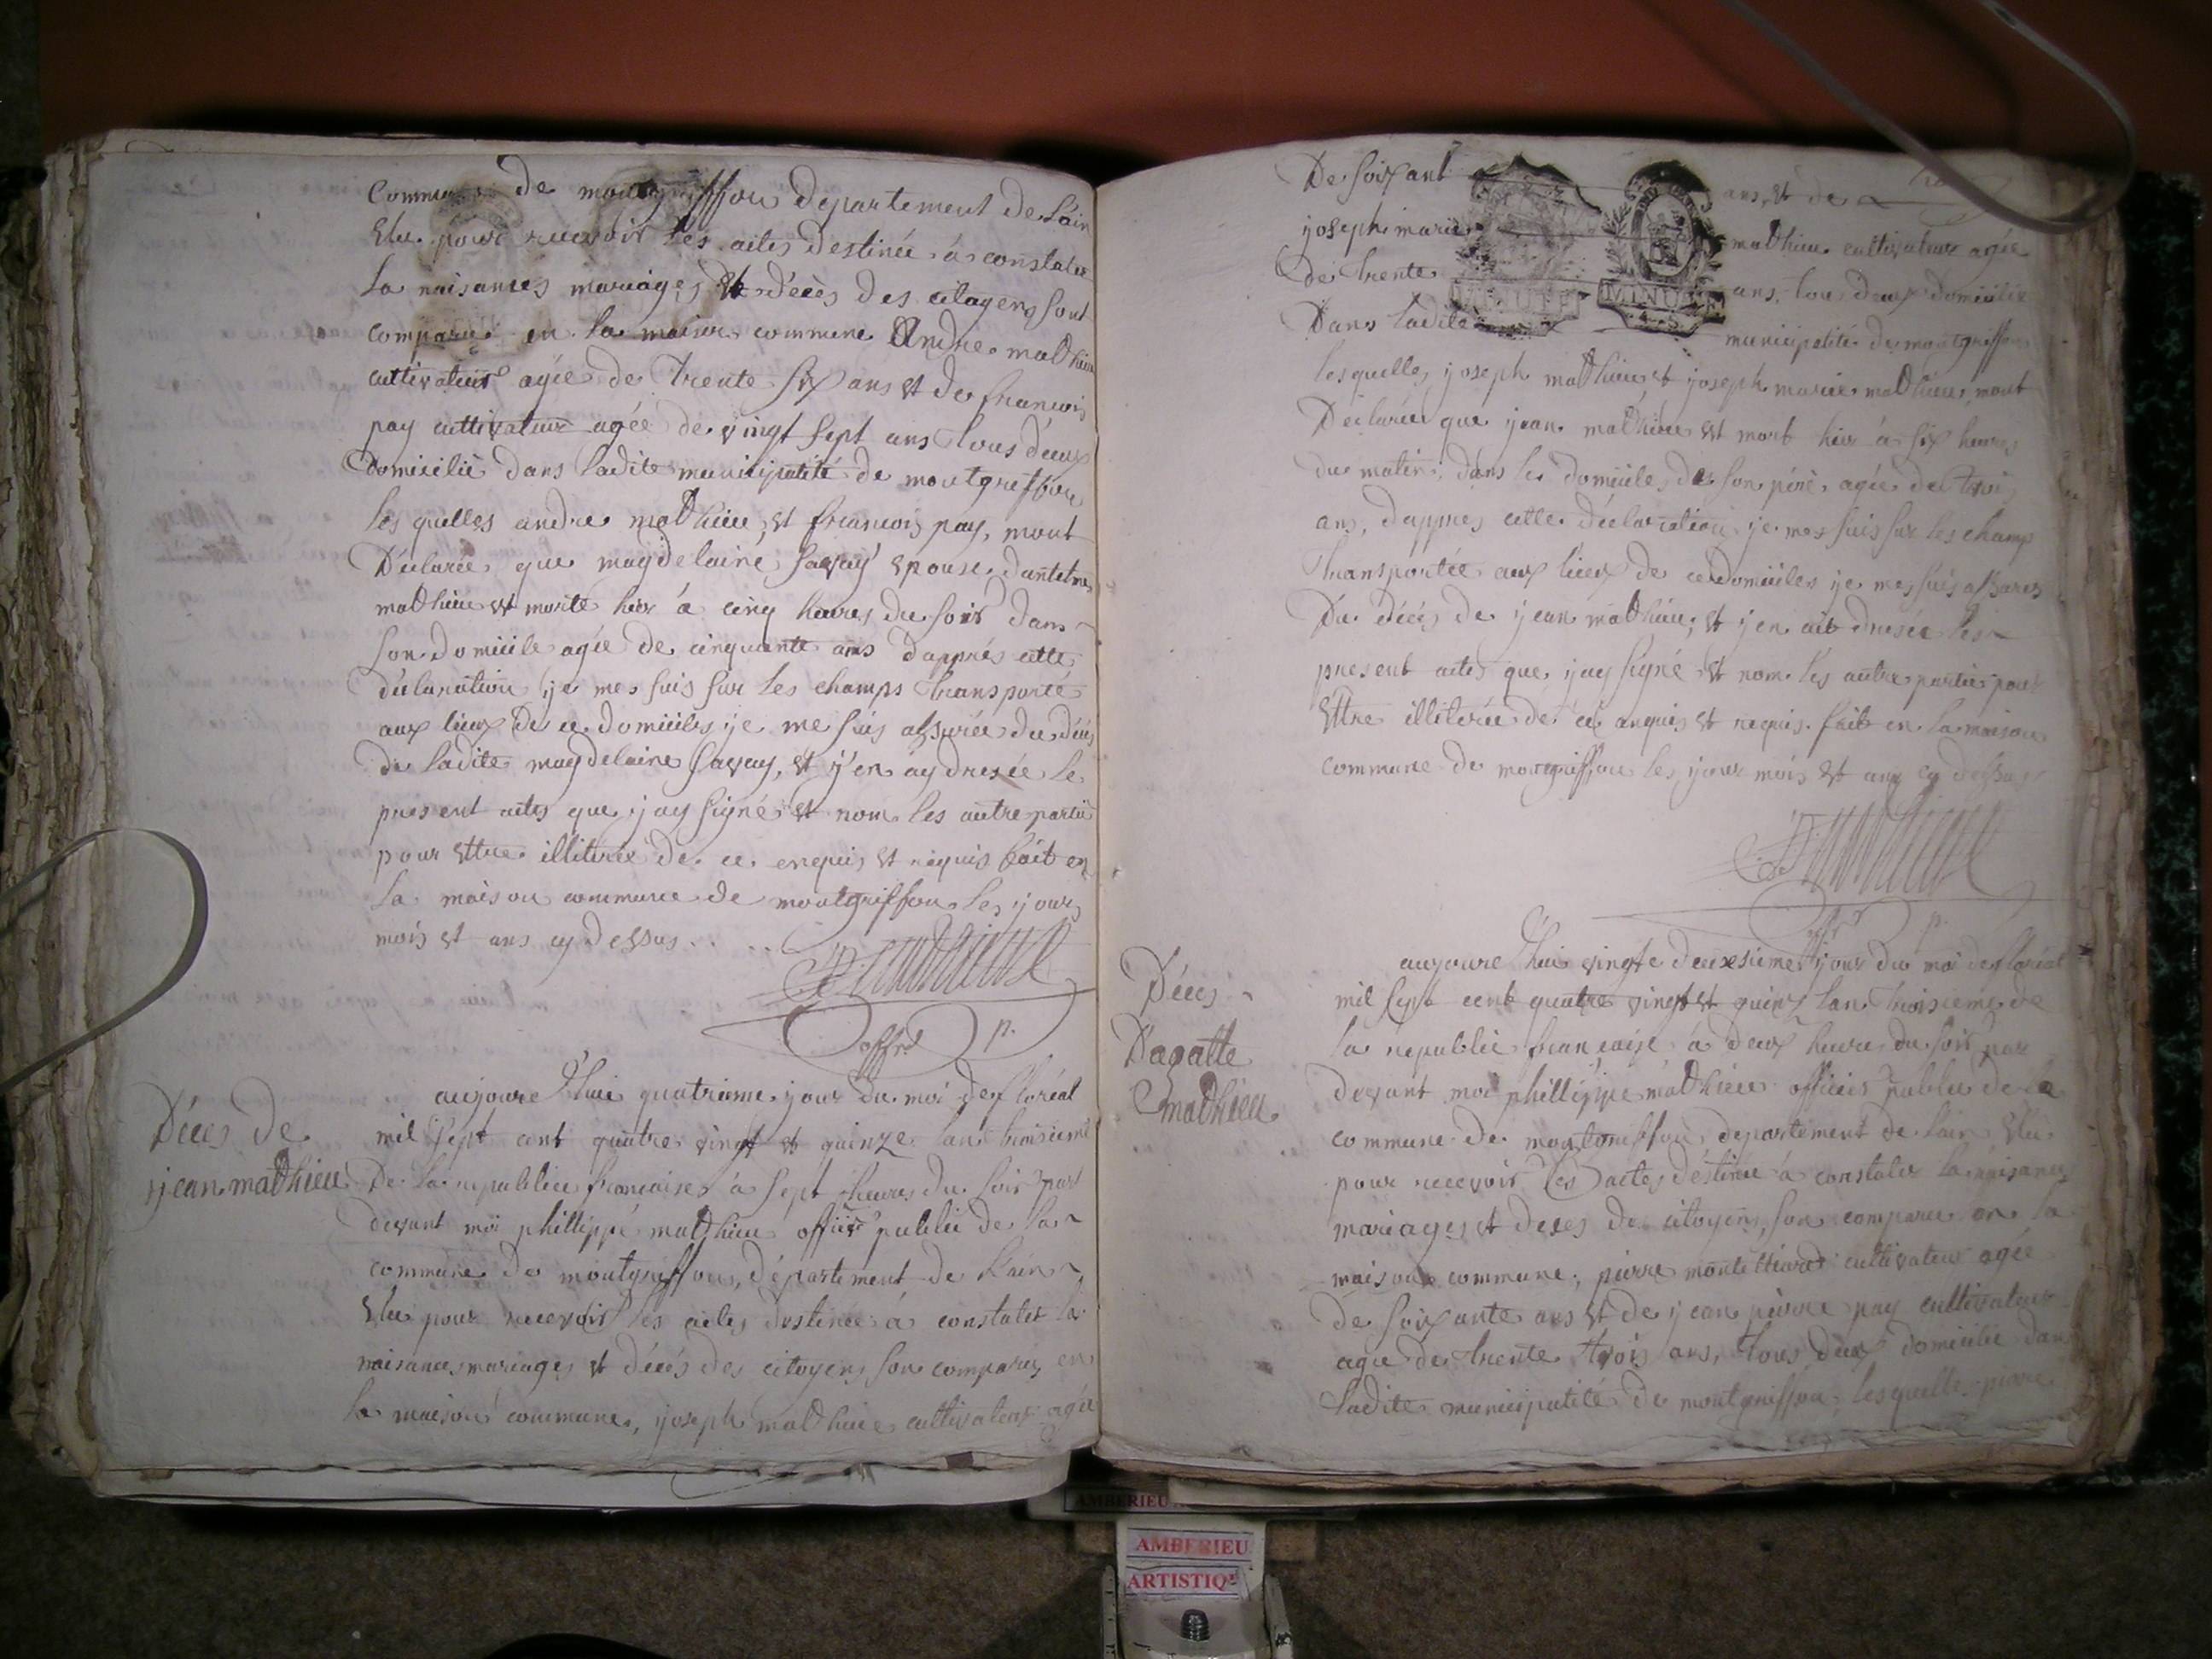 commune de montgriffon departement de Lain
Elu pour recevoir les actes destinée a constater
la naisances mariages et decès des citoyens sont
comparus en la maison commune Andre mathieu
cultivateur agée de trente six ans et de francois
pay cultivateur agée de vingt sept ans tous deux
domicilié dans ladite municipalité de montgriffon
lesquelles andre mathieu, et francois pay, mont
Déclarée que magdelaine savey epouse dantelme
mathieu est morte hier a cinq heures du soir dans
son domicile agée de cinquante ans dapprés cette
déclaration je me suis sur les champs transporté
aux lieux de ce domiciles je me suis assurée du décés
de ladite magdelaine savay, et j'en ay dresée le
present actes que jay signé et nom les autre partie
pour ettre illiterée de ce enquis et requis fait en
la maison commune de montgriffon les jours
mois et ans cy dessus
P. mathieu
offr p.
Décès de
jean mathieu
aujourd'hui quatrieme jour du moi de floréal
mil sept cent quatre vingt et quinze lan troisieme
De la republice francaises a sept heures du soir par
devant moi phillippe mathieu officier publice de la
commune de montgriffon, département de Lain
Elu pour recevoir les actes destinée a constater la
naisances mariages et décés des citoyens son comparus en
la maison commune, joseph mathieu cultivateur agée
De soixant ans, et de
joseph marie mathieu cultivateur agée
de trente ans, tou deux domicilie
Dans ladite municipalité de montgriffon
MINUTE MINUTE
lesquelles joseph mathieu et joseph marie mathieu, mont
Déclarée que jean mathieu est mort hier a six heures
du matin, dans le domicile de son pére agée de trois
ans, dappres cette déclaration je me suis sur les champ
transportée aux lieux de ce domiciles je me suis assurés
Du décès de jean mathieu, et jen ait dresée les
present actes que jay signé et nom les autre partie pour
Ettre illiterée de ce anquis et requis fait en la maison
commune de montgriffon les jour mois et ans cy dessus
P. mathieu
offr p.
Déces
Dagatte
mathieu
aujourd'hui vingte deuxsieme jour du moi de floréal
mil sept cent quatre vingt et quinz lan troisieme de
la republice francaise a deux heures du soir par
devant moi phillippe mathieu officies publice de la
commune de montgriffon departement de lain Elu
pour recevoir les actes déstinée a constater la naisances
mariages et deces de citoyens, son comparu en la
maison commune, pierre montilliard cultivateur agée
de soixante ans et de jean pierre pay cultivateur
agée de trente trois ans, tous deux domicilié dan
ladite municipalité de montgriffon, lesquelles pierre
AMBERIEU
AMBERIEU
ARTISTIQ